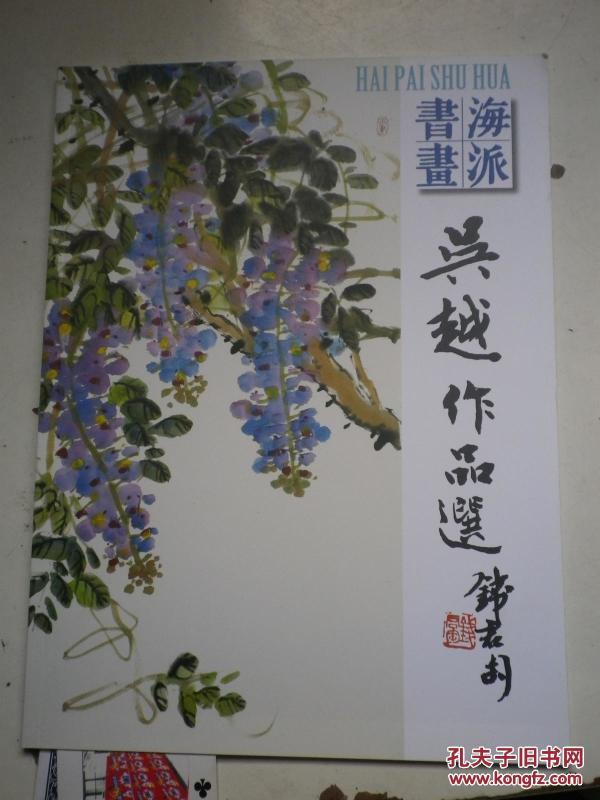 HAI PAI SHU HUA
海派
書畫
吳越作品選
孔夫子旧书网
www.kongfz.com